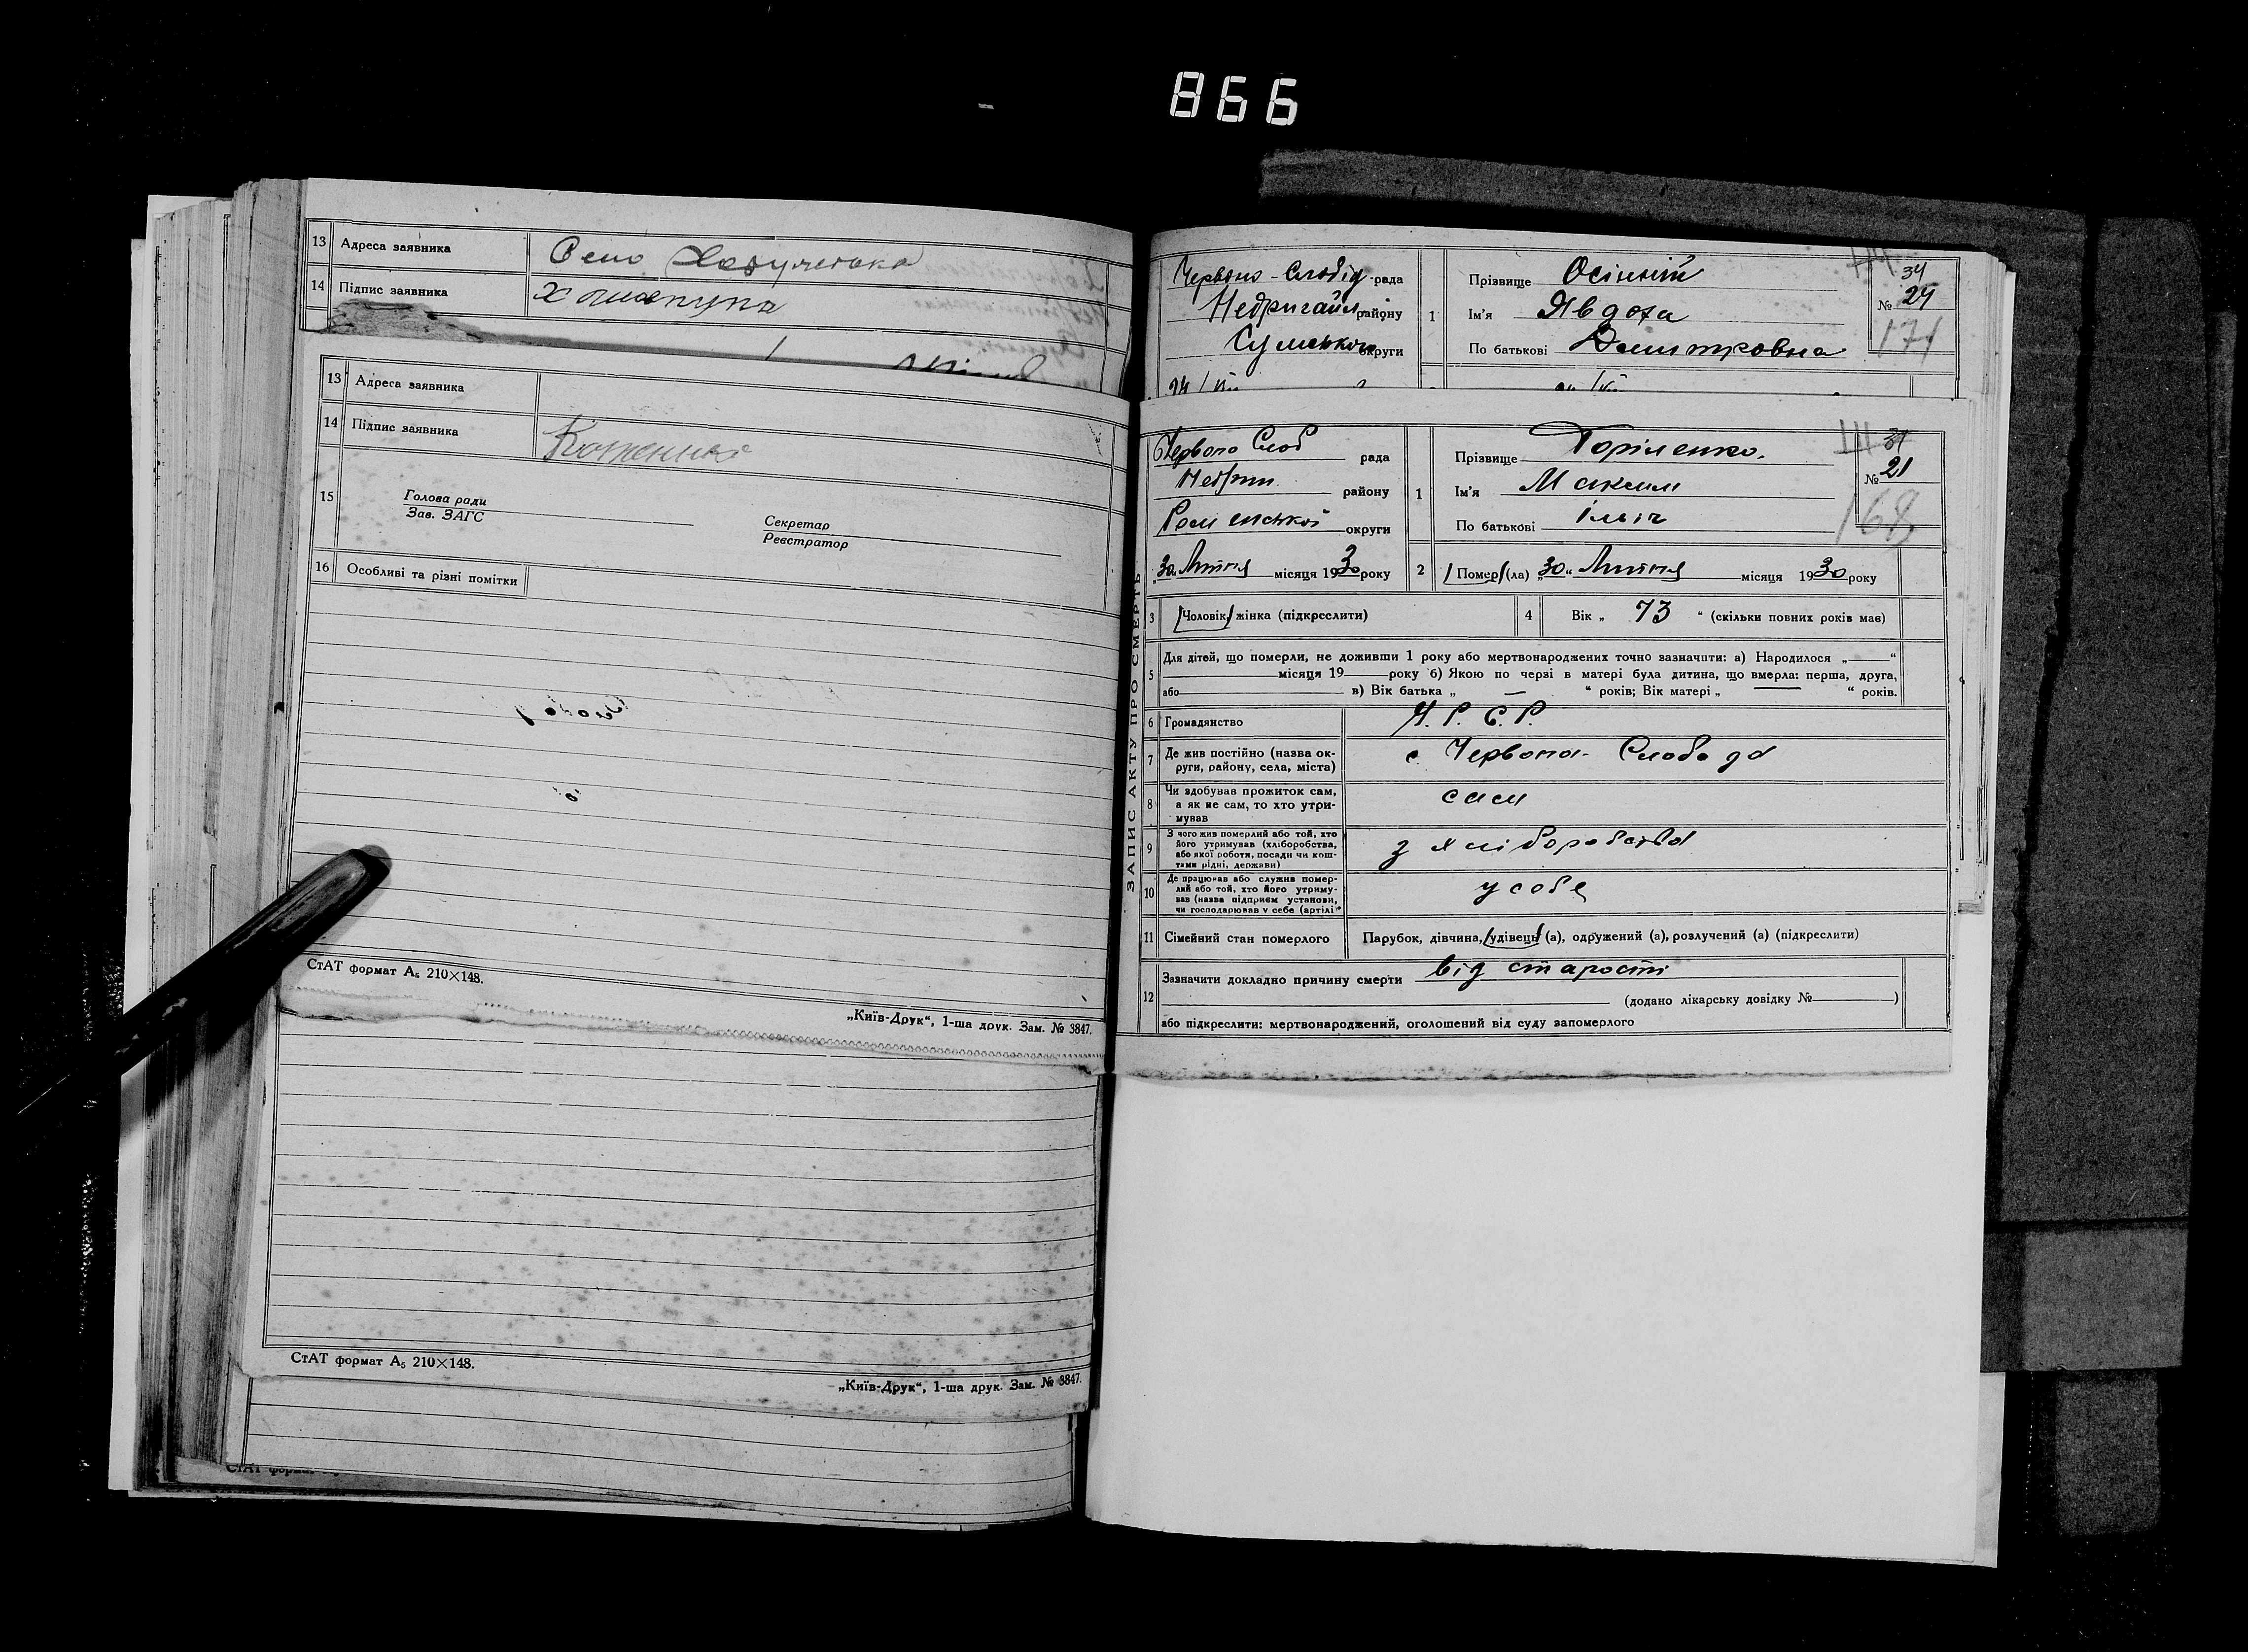 866
13 Адреса заявника Село
14 Підпис заявника
13 Адреса заявника
14 Підпис заявника
15 Голова ради
Зав. ЗАГС
Секретар
Реєстратор
16 Особливі та різні помітки
СтАТ формат А₅ 210×148.
„Київ-Друк“, 1-ша друк. Зам. № 3847.
СтАТ формат А₅ 210×148.
„Київ-Друк“, 1-ша друк. Зам. № 3847.
Червоно-Слобід рада
Недригайл району
Сумського округи
1 Прізвище Осінній
Ім'я Явдоха
По батькові Домитровна
34
№ 24
171
ЗАПИС АКТУ ПРО СМЕРТЬ
Червоно Слоб рада
Недриг району
Роменської округи
1 Прізвище Горіленко.
Ім'я Максим
По батькові Ільіч
31
№ 21
168
„30“ Липня місяця 1930 року
2 Помер (ла) „30“ Липня місяця 1930 року
3 Чоловік, жінка (підкреслити)
4 Вік „ 73 “ (скільки повних років має)
5 Для дітей, що померли, не доживши 1 року або мертвонароджених точно зазначити: а) Народилося „ — “
місяця 19 року б) Якою по черзі в матері була дитина, що вмерла: перша, друга,
або в) Вік батька „ — “ років; Вік матері „ — “ років.
6 Громадянство У. Р. С. Р.
7 Де жив постійно (назва ок-
руги, району, села, міста) с. Червона-Слобода
8 Чи здобував прожиток сам,
а як не сам, то хто утри-
мував сам
9 З чого жив померлий або той, хто
його утримував (хліборобства,
або якої роботи, посади чи кош-
тами рідні, держави) з хліборобства
10 Де працював або служив помер-
лий або той, хто його утриму-
вав (назва підприєм установи,
чи господарював у себе (артілі) у себе
11 Сімейний стан померлого Парубок, дівчина, удівець (а), одружений (а), розлучений (а) (підкреслити)
12 Зазначити докладно причину смерти від старості
(додано лікарську довідку № )
або підкреслити: мертвонароджений, оголошений від суду запомерлого